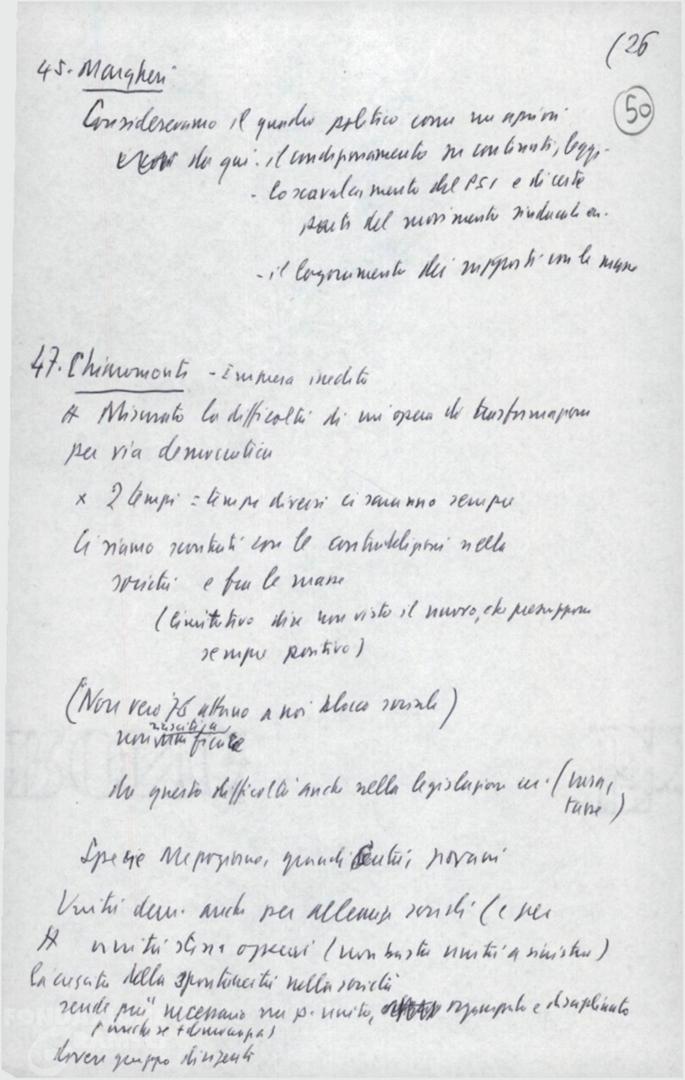 (26
50
45. Margheri
Consideravamo il quadro politico come un a priori
da qui - il condizionamento sui contenuti, leggi -
- lo scavalcamento del PSI e di certe
parti del movimento sindacale ecc.
- il logoramento dei rapporti con le masse
47. Chiaromonte - Impresa inedita
A Misurato la difficoltà di un'opera di trasformazione
per via democratica
x 2 tempi = tempi diversi ci saranno sempre
Ci siamo scontrati con le contraddizioni nella
società e fra le masse
(limitativo dire non visto il nuovo, che presuppone
sempre positivo)
(Non vero 76 attorno a noi blocco sociale)
non
da questo difficoltà anche nella legislazione ecc. (casa,
tasse)
Specie Mezzogiorno, grandi città, giovani
Unità dem. anche per alleanze sociali (e per
A unità stessa operai (non basta unità a sinistra)
La crescita della spontaneità nella società
rende più necessario un p. unito, organizzato e disciplinato
(anche se + democrazia)
dovere gruppo dirigente